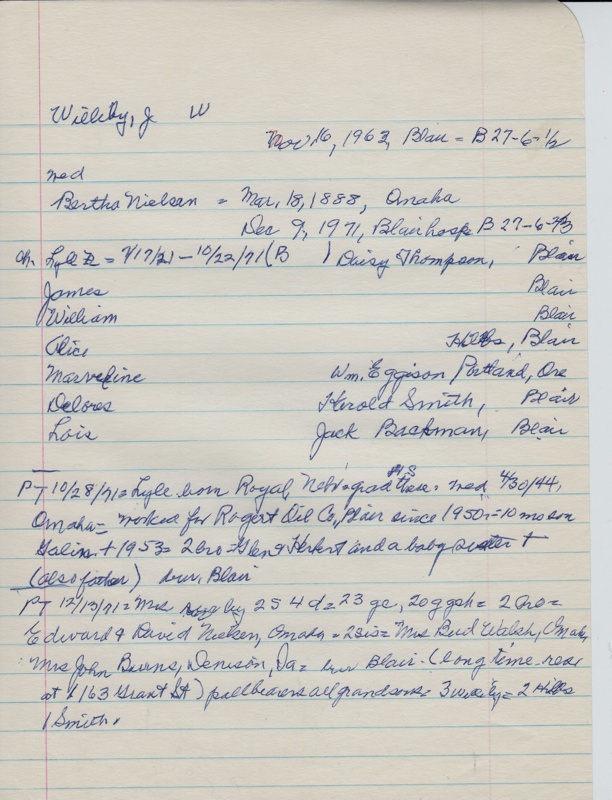 Willeby, J W
Nov 16, 1963, Blair = B 27-6-1/2
med
Bertha Nielsen = Mar, 18, 1888, Omaha
Dec 9, 1971, Blair hosp B 27-6-
ch. Lyle = 7/17/21 - 10/22/71 (B ) Daisy Thompson, Blair
James Blair
William Blair
Alice Hilbs, Blair
Marveline Wm. Eggison Portland, Ore
Delores Herold Smith, Blair
Lois Jack Backman, Blair
PT 10/28/71 = Lyle born Royal, Nebr = grad HS there = med 4/30/44,
Omaha = worked for Rogert Oil Co, Blair since 1950 = 10 mo son
+ 1953 = 2 bro = Glen & Herbert and a baby sister +
(also father) bur. Blair
PT 12/13/71 = Mrs by 2 S 4 d = 23 gc, 20 ggch = 2 bro =
Edward & David Nielsen, Omaha = 2 sis = Mrs Bud Walsh, Omaha,
Mrs John Burns, Denison, Ia = bur Blair. (long time res
at 1163 Grant St) pallbearers all grandsons = 3 = 2 Hilbs
1 Smith.